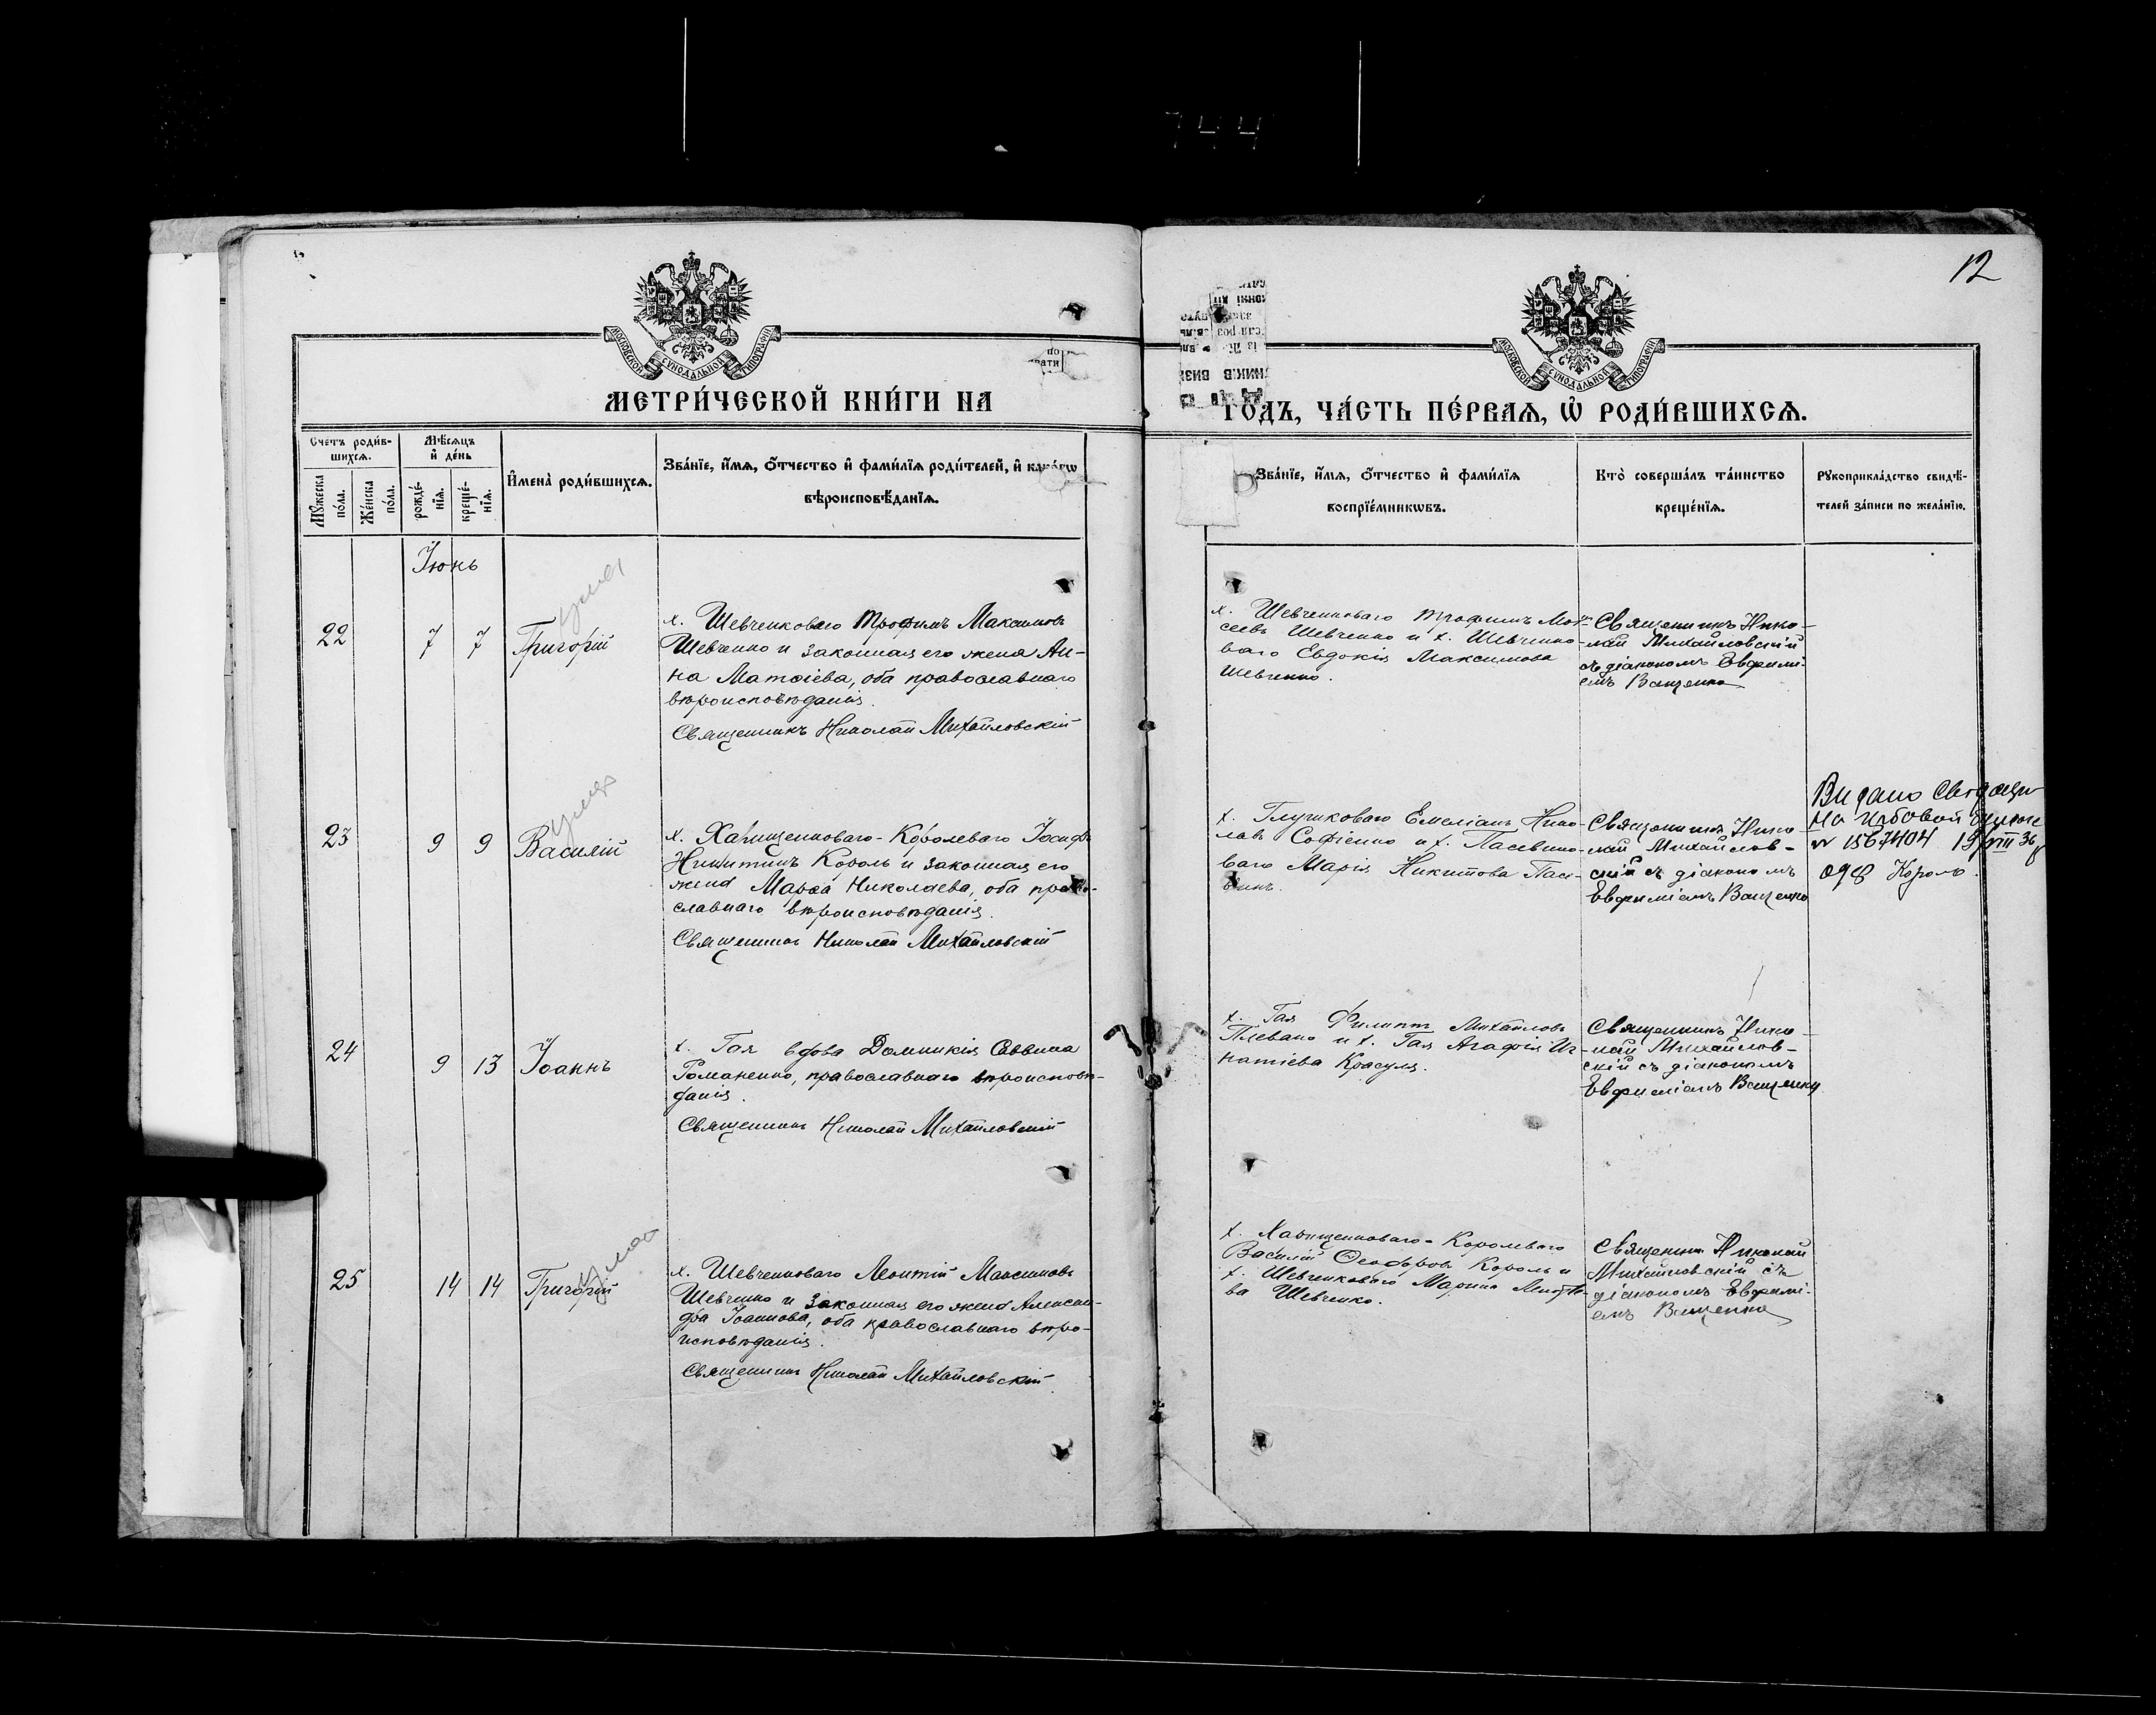 12
МОСКОВСКОЙ СѴНОДАЛЬНОЙ ТИПОГРАФІИ
МОСКОВСКОЙ СѴНОДАЛЬНОЙ ТИПОГРАФІИ
МЕТРИ́ЧЕСКОЙ КНИ́ГИ НА
ГОДЪ, ЧА́СТЬ ПЕ́РВАѦ, Ѽ РОДИ́ВШИХСѦ.
Счетъ роди́в-
шихсѧ.
Мѣ́сѧцъ
и҆ де́нь
Мꙋ́жеска
по́ла.
Же́нска
по́ла.
рожде́-
нїѧ.
креще́-
нїѧ.
И҆мена̀ роди́вшихсѧ.
Зва́нїе, и҆́мѧ, о҆́тчество и҆ фами́лїѧ роди́телей, и҆ како́гѡ
вѣроисповѣ́данїѧ.
Зва́нїе, и҆́мѧ, о҆́тчество и҆ фами́лїѧ
воспрїе́мникѡвъ.
Кто̀ соверша́лъ та́инство
креще́нїѧ.
Рꙋкоприкла́дство свидѣ́-
телей за́писи по жела́нїю.
Іюнь
22
7
7
Григорій
х. Шевченковаго Трофимъ Максимовъ
Шевченко и законная его жена Ан-
на Матѳіева, оба православнаго
вѣроисповѣданія.
Священникъ Николай Михайловскій
х. Шевченковаго Трофимъ Мои-
сеевъ Шевченко и х. Шевченко-
ваго Евдокія Максимова
Шевченко.
Священникъ Нико-
лай Михайловскій
съ діакономъ Евфимі-
емъ Ващенко
23
9
9
Василій
х. Харищенковаго-Королеваго Іосифъ
Никитинъ Король и законная его
жена Марѳа Николаева, оба право-
славнаго вѣроисповѣданія.
Священникъ Николай Михайловскій
х. Глушковаго Емеліанъ Нико-
лаевъ Софіенко и х. Пасѣчно-
ваго Марія Никитова
Священникъ Нико-
лай Михайлов-
скій съ діакономъ
Евфиміемъ Ващенко
Видано
№ 1567404 19/VIII 36
Король.
24
9
13
Іоаннъ
х. Гая вдова Домникія Саввина
Романенко, православнаго вѣроисповѣ-
данія.
Священникъ Николай Михайловскій
х. Гая Филиппъ Михайловъ
Плевако и х. Гая Агафія Иг-
натіева Красуля.
Священникъ Нико-
лай Михайлов-
скій съ діакономъ
Евфиміемъ Ващенко
25
14
14
Григорій
х. Шевченковаго Леонтій Максимовъ
Шевченко и законная его жена Алексан-
дра Іоаннова, оба православнаго вѣро-
исповѣданія.
Священникъ Николай Михайловскій
х. Харищенковаго-Королеваго
Василій Ѳеодоровъ Король и
х. Шевченковаго Марина
ва Шевченко.
Священникъ Николай
Михайловскій съ
діакономъ Евфимі-
емъ Ващенко